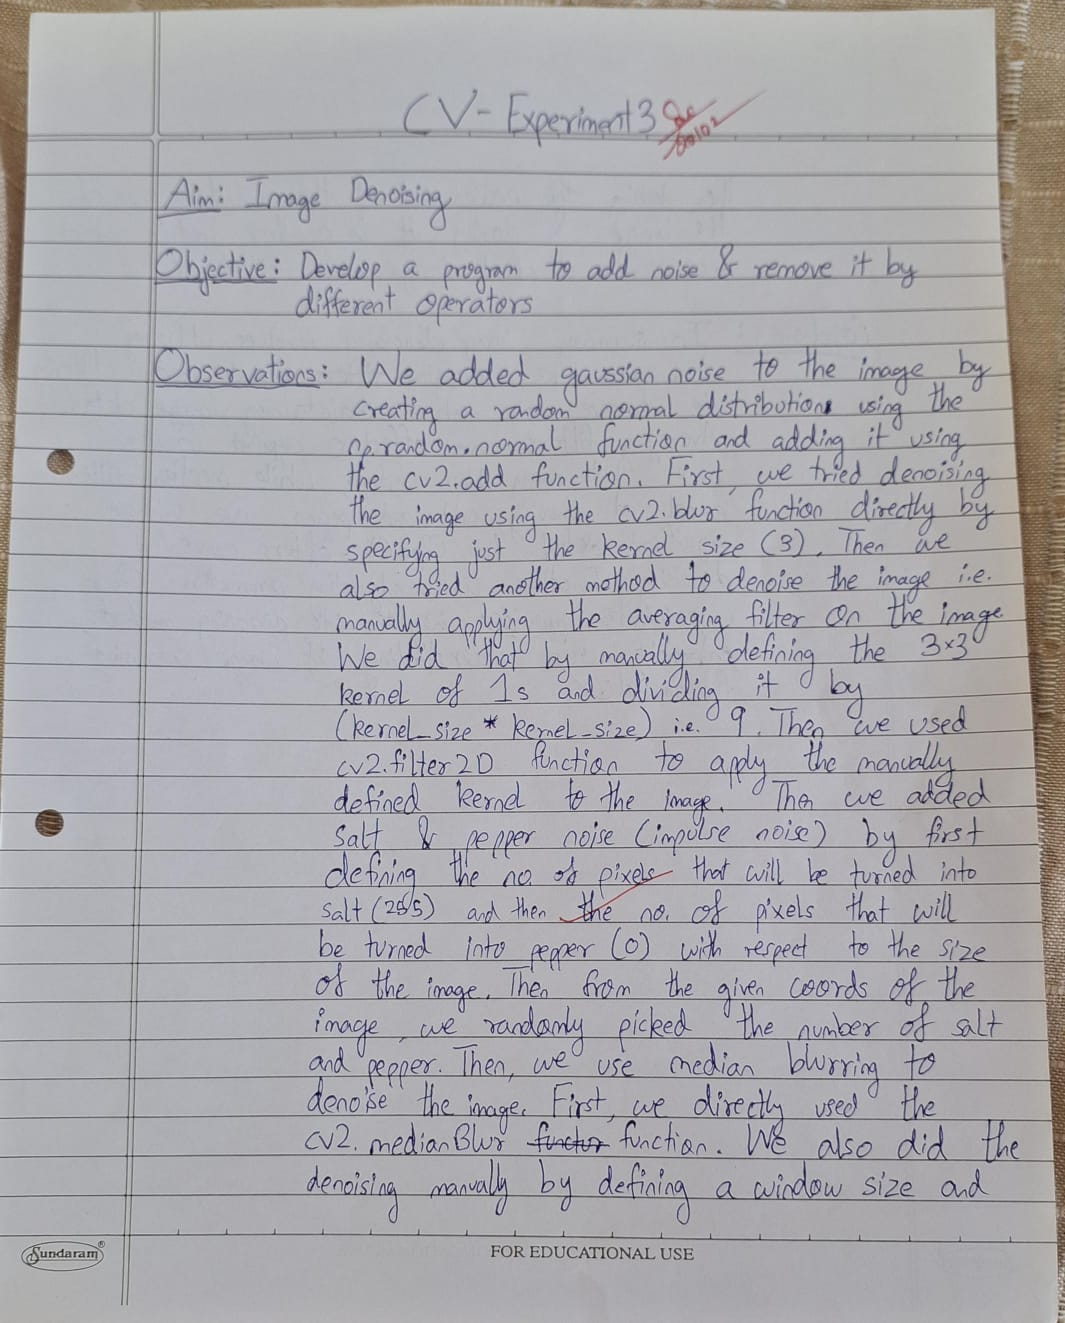 CV- Experiment 3
Aim: Image Denoising
Objective: Develop a program to add noise & remove it by
different operators
Observations: We added gaussian noise to the image by
creating a random normal distributions using the
np.random.normal function and adding it using
the cv2.add function. First, we tried denoising
the image using the cv2.blur function directly by
specifying just the kernel size (3). Then we
also tried another method to denoise the image i.e.
manually applying the averaging filter on the image
We did that by manually defining the 3×3
kernel of 1s and dividing it by
(kernel_size * kernel_size) i.e. 9. Then we used
cv2.filter2D function to apply the manually
defined kernel to the image. Then we added
salt & pepper noise (impulse noise) by first
defining the no. of pixels that will be turned into
salt (255) and then the no. of pixels that will
be turned into pepper (0) with respect to the size
of the image. Then from the given coords of the
image, we randomly picked the number of salt
and pepper. Then, we use median blurring to
denoise the image. First, we directly used the
cv2.medianBlur function. We also did the
denoising manually by defining a window size and
Sundaram®
FOR EDUCATIONAL USE